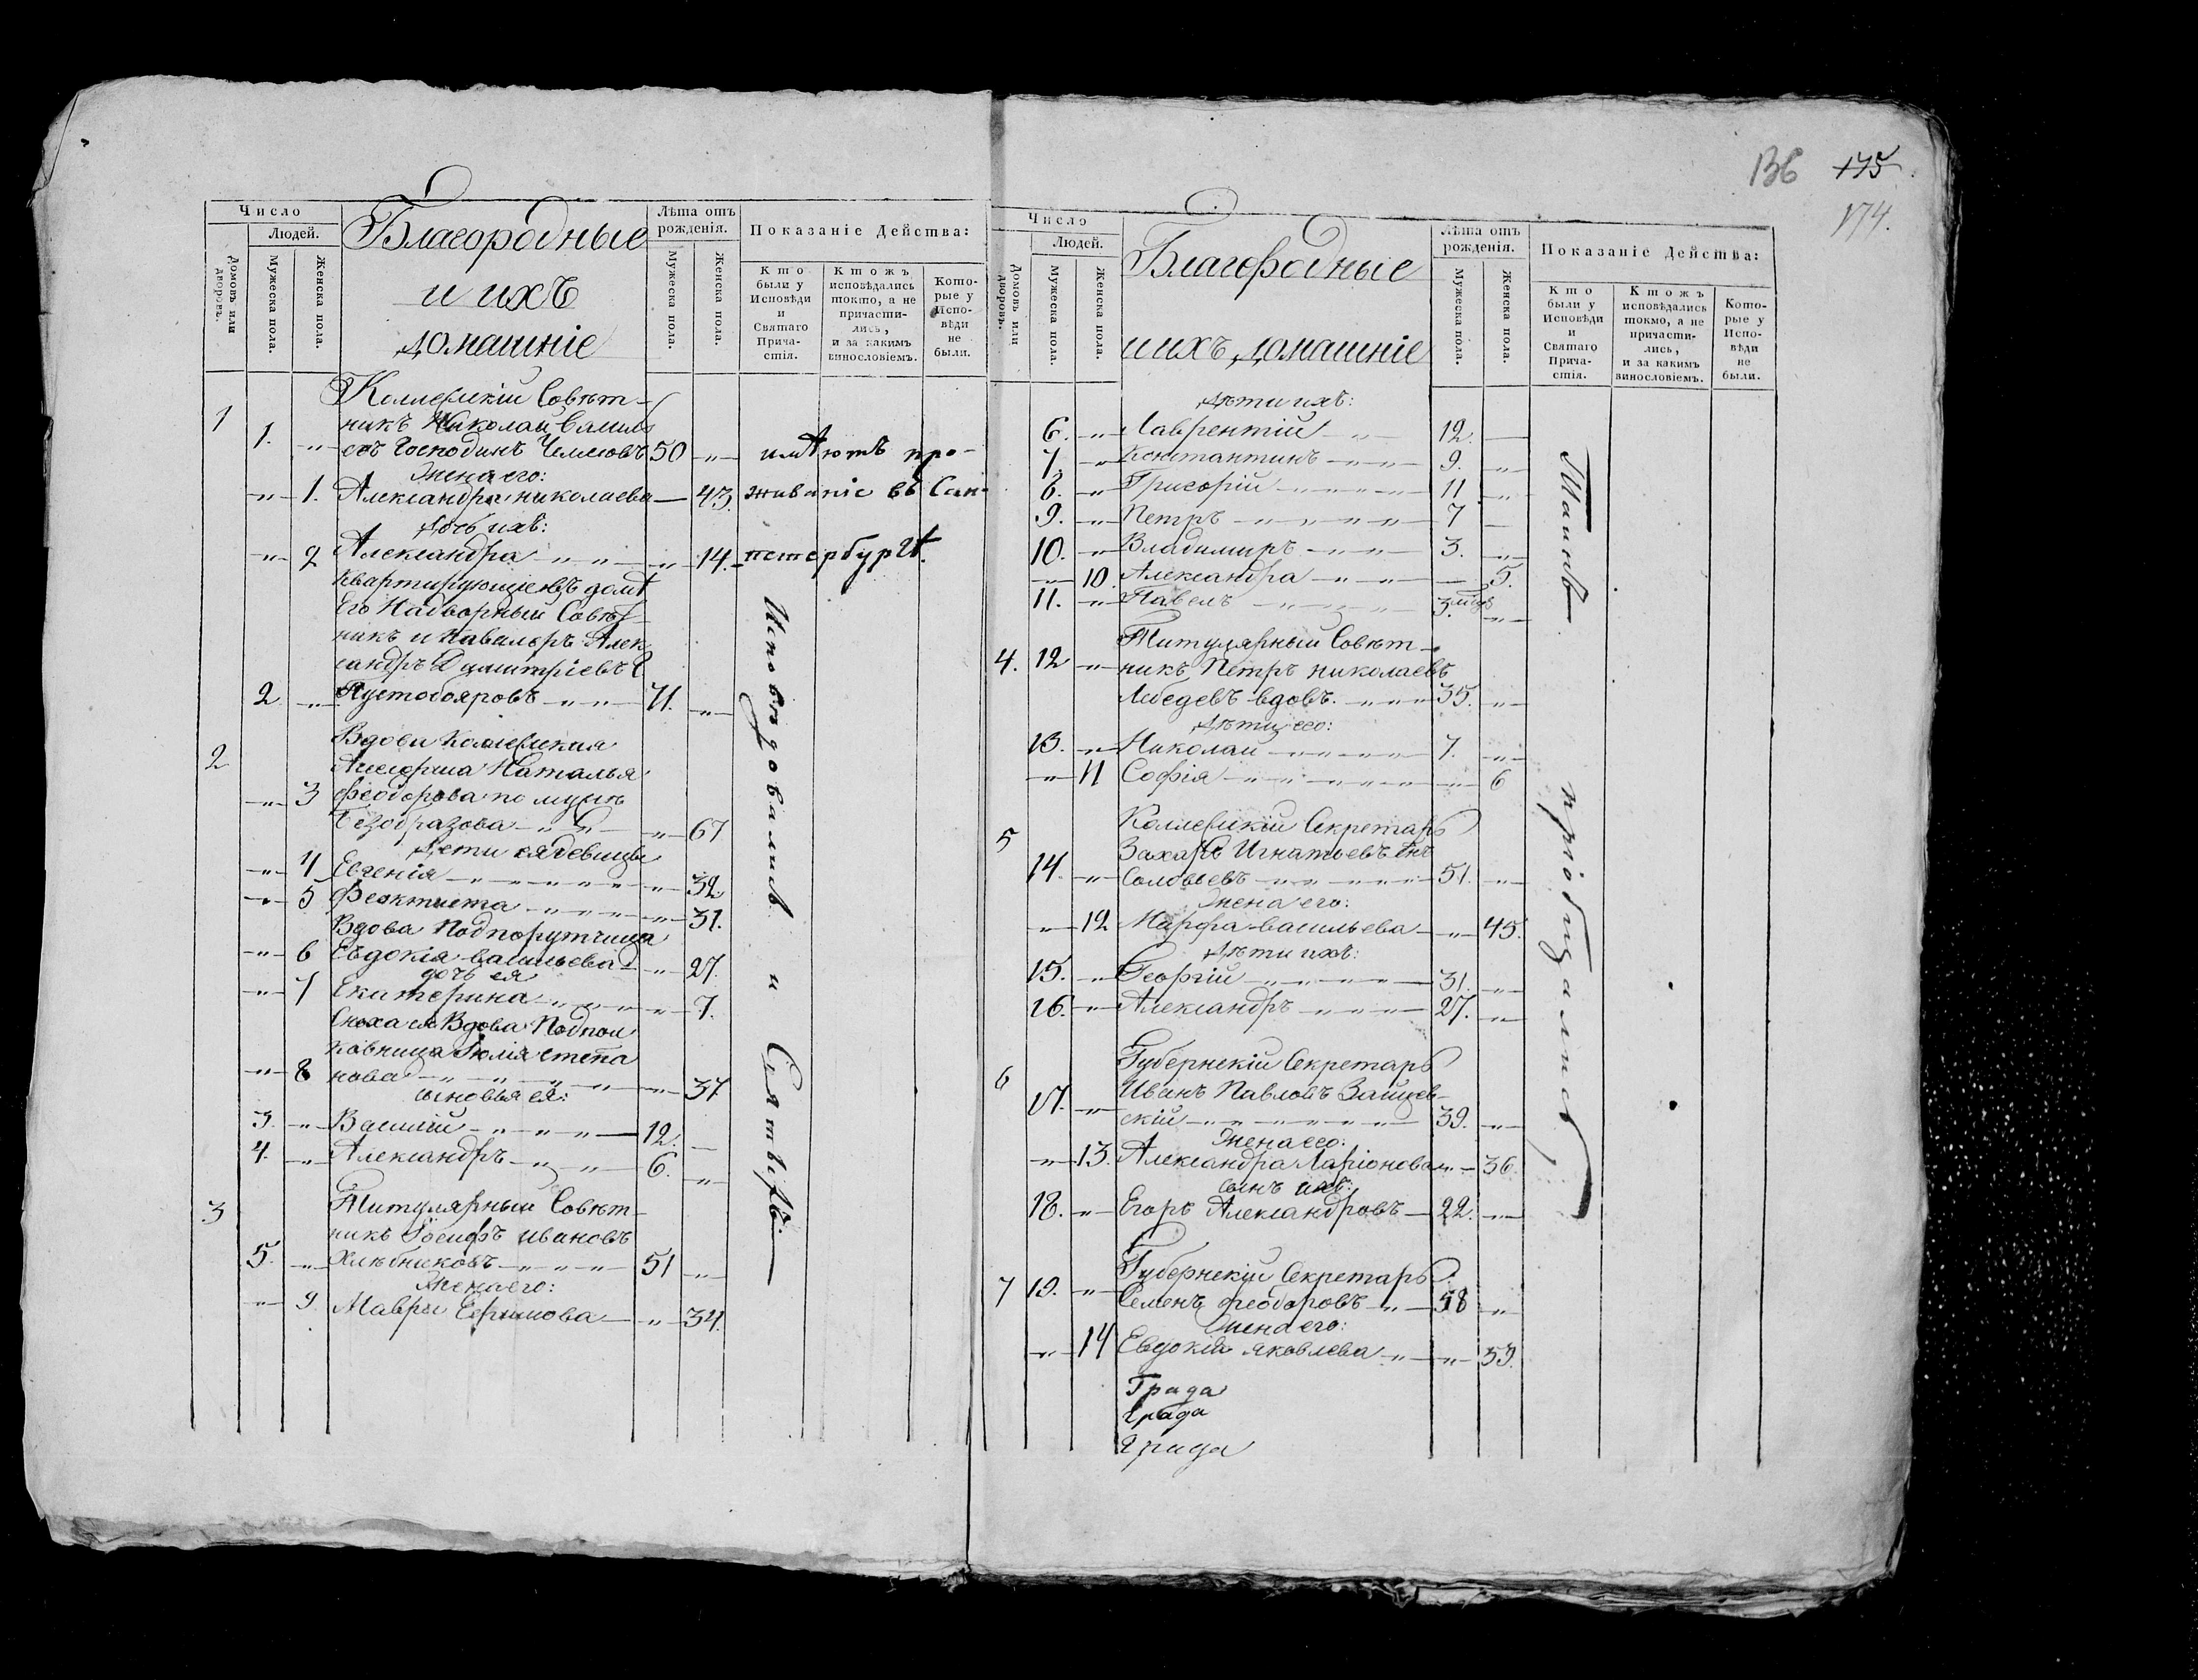 136 175
174.
Число
Людей.
Домовъ или дворовъ.
Мужеска пола.
Женска пола.
Благородные
и ихъ
домашніе
Лѣта отъ рожденія.
Мужеска пола.
Женска пола.
Показаніе Действа:
Кто были у Исповѣди и Святаго Причастія.
Ктожъ исповѣдались токмо, а не причастились, и за какимъ винословіемъ.
Которые у Исповѣди не были.
Коллежскій Совѣт-
1 никъ Николай Василь
1. -„- евъ Господинъ 50 -„- имѣютъ про-
Жена его:
-„- 1. Александра Николаева — 43. живаніе въ Сан-
Дочь ихъ:
-„- 2 Александра -„- 14. петербургѣ.
Квартирующіе въ домѣ
Его Надворный Совѣт-
никъ и Кавалеръ Алек
сандръ Димитріевъ
2. -„- Пустобояровъ 71. -„-
Вдова Коллежская
2 Ассесорша Наталья
-„- 3 Феодорова по мужѣ
Безобразова -„- 67
Дети ея девицы
-„- 4 Евгенія -„- 32.
-„- 5 Феоктиста -„- 31.
Вдова Подпорутчица
-„- 6 Евдокія Васильева -„- 27.
дочь ея
-„- 7 Екатерина -„- 7.
Сноха ея Вдова Подпол
ковница Юлія Степа
-„- 8 нова -„- 37
сыновья ея:
3. -„- Василій 12. —
4. -„- Александръ 6. -„-
3 Титулярный Совѣт-
никъ Іосифъ Ивановъ
5. -„- Хлѣбниковъ 51 -„-
Жена его:
-„- 9. Мавра Ефимова -„- 34.
Исповѣдовались и Святыхъ
Число
Людей.
Домовъ или дворовъ.
Мужеска пола.
Женска пола.
Благородные
и ихъ домашніе
Лѣта отъ рожденія.
Мужеска пола.
Женска пола.
Показаніе Действа:
Кто были у Исповѣди и Святаго Причастія.
Ктожъ исповѣдались токмо, а не причастились, и за какимъ винословіемъ.
Которые у Исповѣди не были.
Дѣти ихъ:
6. -„- Лаврентій 12. —
7. -„- Константинъ 9. -„-
8. -„- Григорій 11 -„-
9. -„- Петръ 7 —
10. -„- Владимиръ 3. -„-
-„- 10 Александра — 5.
11. -„- Павелъ 3. -„-
Титулярный Совѣт-
4. 12 -„- никъ Петръ Николаевъ
Лебедевъ вдовъ. 35. -„-
Дѣти его:
13. -„- Николай 7. -„-
-„- 11 Софія -„- 6
Коллежскій Секретарь
5 Захаръ Игнатьевъ
14. -„- Соловьевъ 51. -„-
Жена его:
-„- 12 Марфа Васильева -„- 45.
Дѣти ихъ:
15. -„- Георгій 31. -„-
16. -„- Александръ 27. -„-
Губернскій Секретарь
6 Иванъ Павловъ Зайцев-
17. -„- скій 39. -„-
Жена его:
-„- 13. Александра Ларіонова -„- 36.
сынъ ихъ:
18. -„- Егоръ Александровъ 22. -„-
Губернскій Секретарь
7 19. -„- Семенъ Феодоровъ 58 -„-
Жена его:
-„- 14 Евдокія Яковлева -„- 53.
Града
Града
Града
Таинъ пріобщались